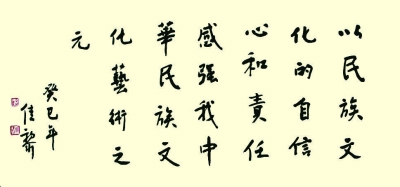 以民族文
化的自信
心和責任
感强我中
華民族文
化藝術之
元
癸巳年
佳